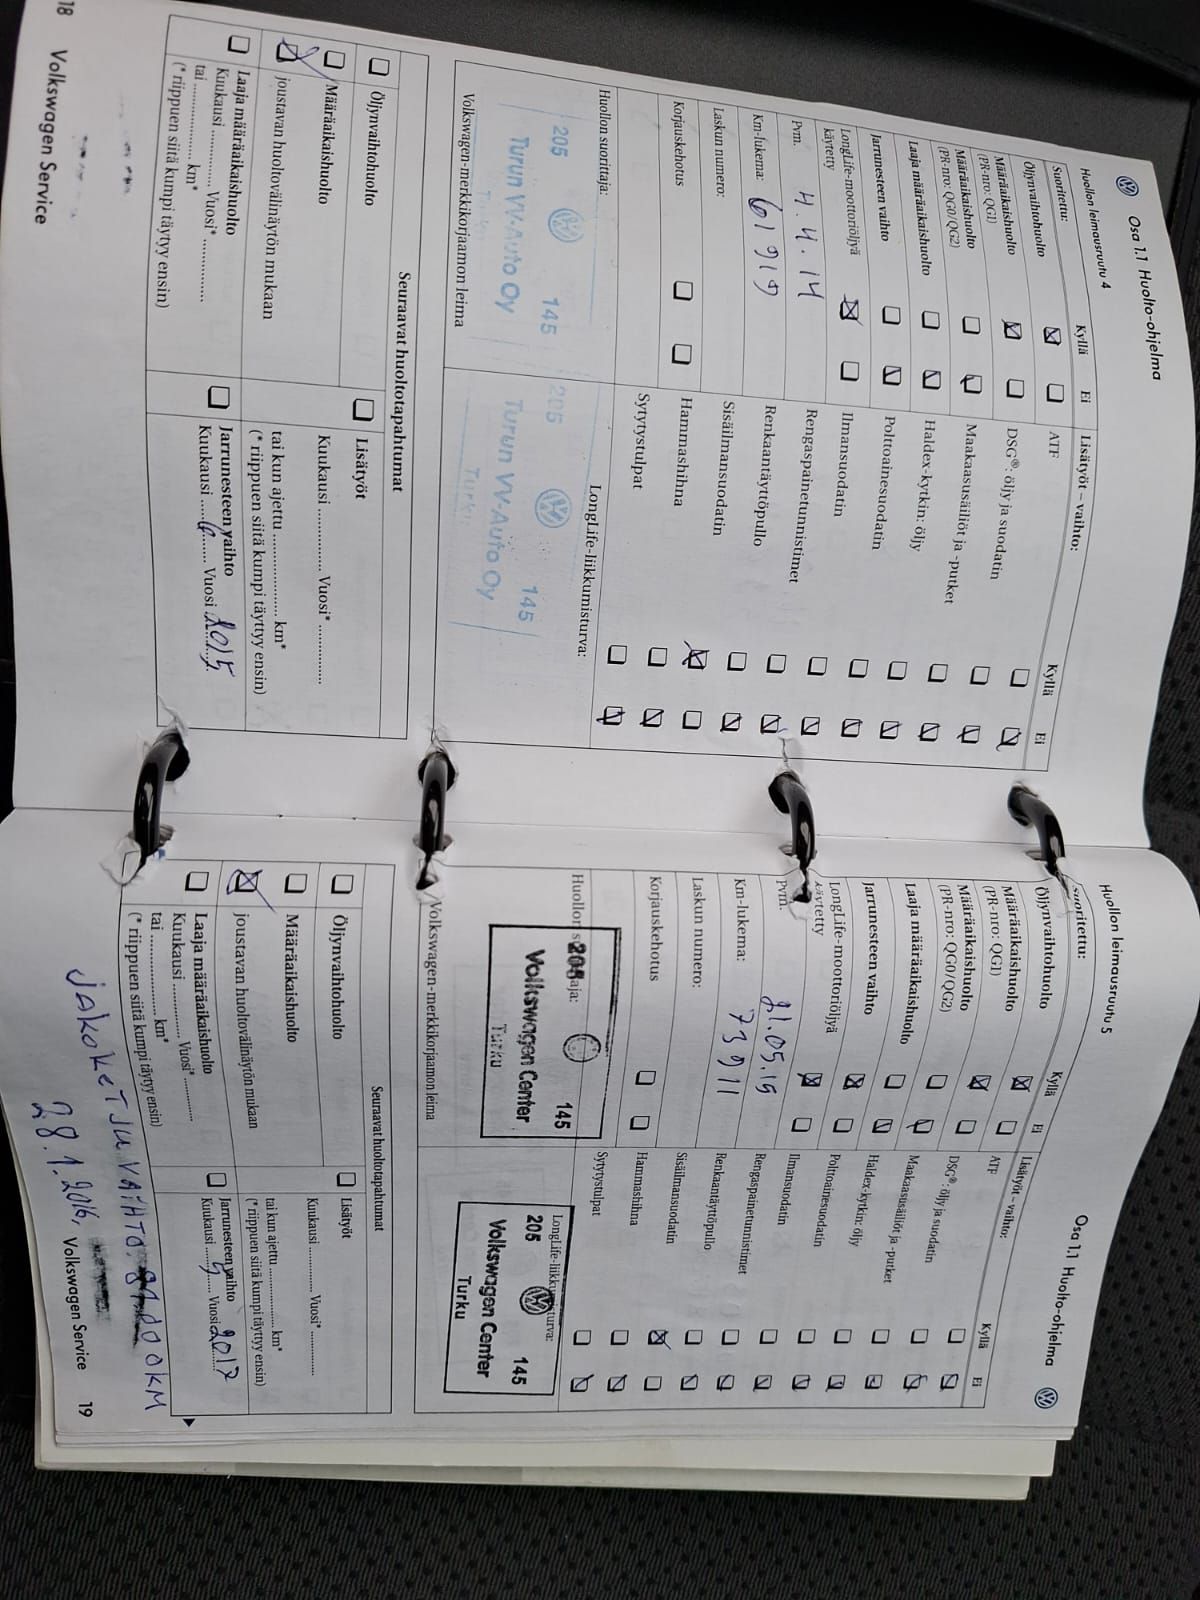 Osa 1.1 Huolto-ohjelma
Huollon leimausruutu 4
Suoritettu: Kyllä Ei
Öljynvaihtohuolto
Määräaikaishuolto
(PR-nro: QG1)
Määräaikaishuolto
(PR-nro: QG0/QG2)
Laaja määräaikaishuolto
Jarrunesteen vaihto
LongLife-moottoriöljyä
käytetty
Pvm. 4.4.14
Km-lukema: 61919
Laskun numero:
Korjauskehotus
Huollon suorittaja:
205 145
Turun VV-Auto Oy
Turku
Volkswagen-merkkikorjaamon leima
Lisätyöt – vaihto: Kyllä Ei
ATF
DSG®: öljy ja suodatin
Maakaasusäiliöt ja -putket
Haldex-kytkin: öljy
Polttoainesuodatin
Ilmansuodatin
Rengaspainetunnistimet
Renkaantäyttöpullo
Sisäilmansuodatin
Hammashihna
Sytytystulpat
LongLife-liikkumisturva:
205 145
Turun VV-Auto Oy
Turku
Seuraavat huoltotapahtumat
Öljynvaihtohuolto
Määräaikaishuolto
joustavan huoltovälinäytön mukaan
Laaja määräaikaishuolto
Kuukausi ............ Vuosi* ............
tai .................. km*
(* riippuen siitä kumpi täytyy ensin)
Lisätyöt
Kuukausi ............ Vuosi* ............
tai kun ajettu .................. km*
(* riippuen siitä kumpi täyttyy ensin)
Jarrunesteen vaihto
Kuukausi ....6.... Vuosi 2015
18 Volkswagen Service
Osa 1.1 Huolto-ohjelma
Huollon leimausruutu 5
suoritettu: Kyllä Ei
Öljynvaihtohuolto
Määräaikaishuolto
(PR-nro: QG1)
Määräaikaishuolto
(PR-nro: QG0/QG2)
Laaja määräaikaishuolto
Jarrunesteen vaihto
LongLife-moottoriöljyä
käytetty
Pvm. 21.05.15
Km-lukema: 73911
Laskun numero:
Korjauskehotus
205 145
Volkswagen Center
Turku
Volkswagen-merkkikorjaamon leima
Lisätyöt – vaihto: Kyllä Ei
ATF
DSG®: öljy ja suodatin
Maakaasusäiliöt ja -putket
Haldex-kytkin: öljy
Polttoainesuodatin
Ilmansuodatin
Rengaspainetunnistimet
Renkaantäyttöpullo
Sisäilmansuodatin
Hammashihna
Sytytystulpat
LongLife-liikkumisturva:
205 145
Volkswagen Center
Turku
Seuraavat huoltotapahtumat
Öljynvaihtohuolto
Määräaikaishuolto
joustavan huoltovälinäytön mukaan
Laaja määräaikaishuolto
Kuukausi ............ Vuosi* ............
tai .................. km*
(* riippuen siitä kumpi täytyy ensin)
Lisätyöt
Kuukausi ............ Vuosi* ............
tai kun ajettu .................. km*
(* riippuen siitä kumpi täyttyy ensin)
Jarrunesteen vaihto
Kuukausi ....5.... Vuosi 2017
JAKOKETJU VAIHTO. 81.000KM
28.1.2016,
Volkswagen Service 19